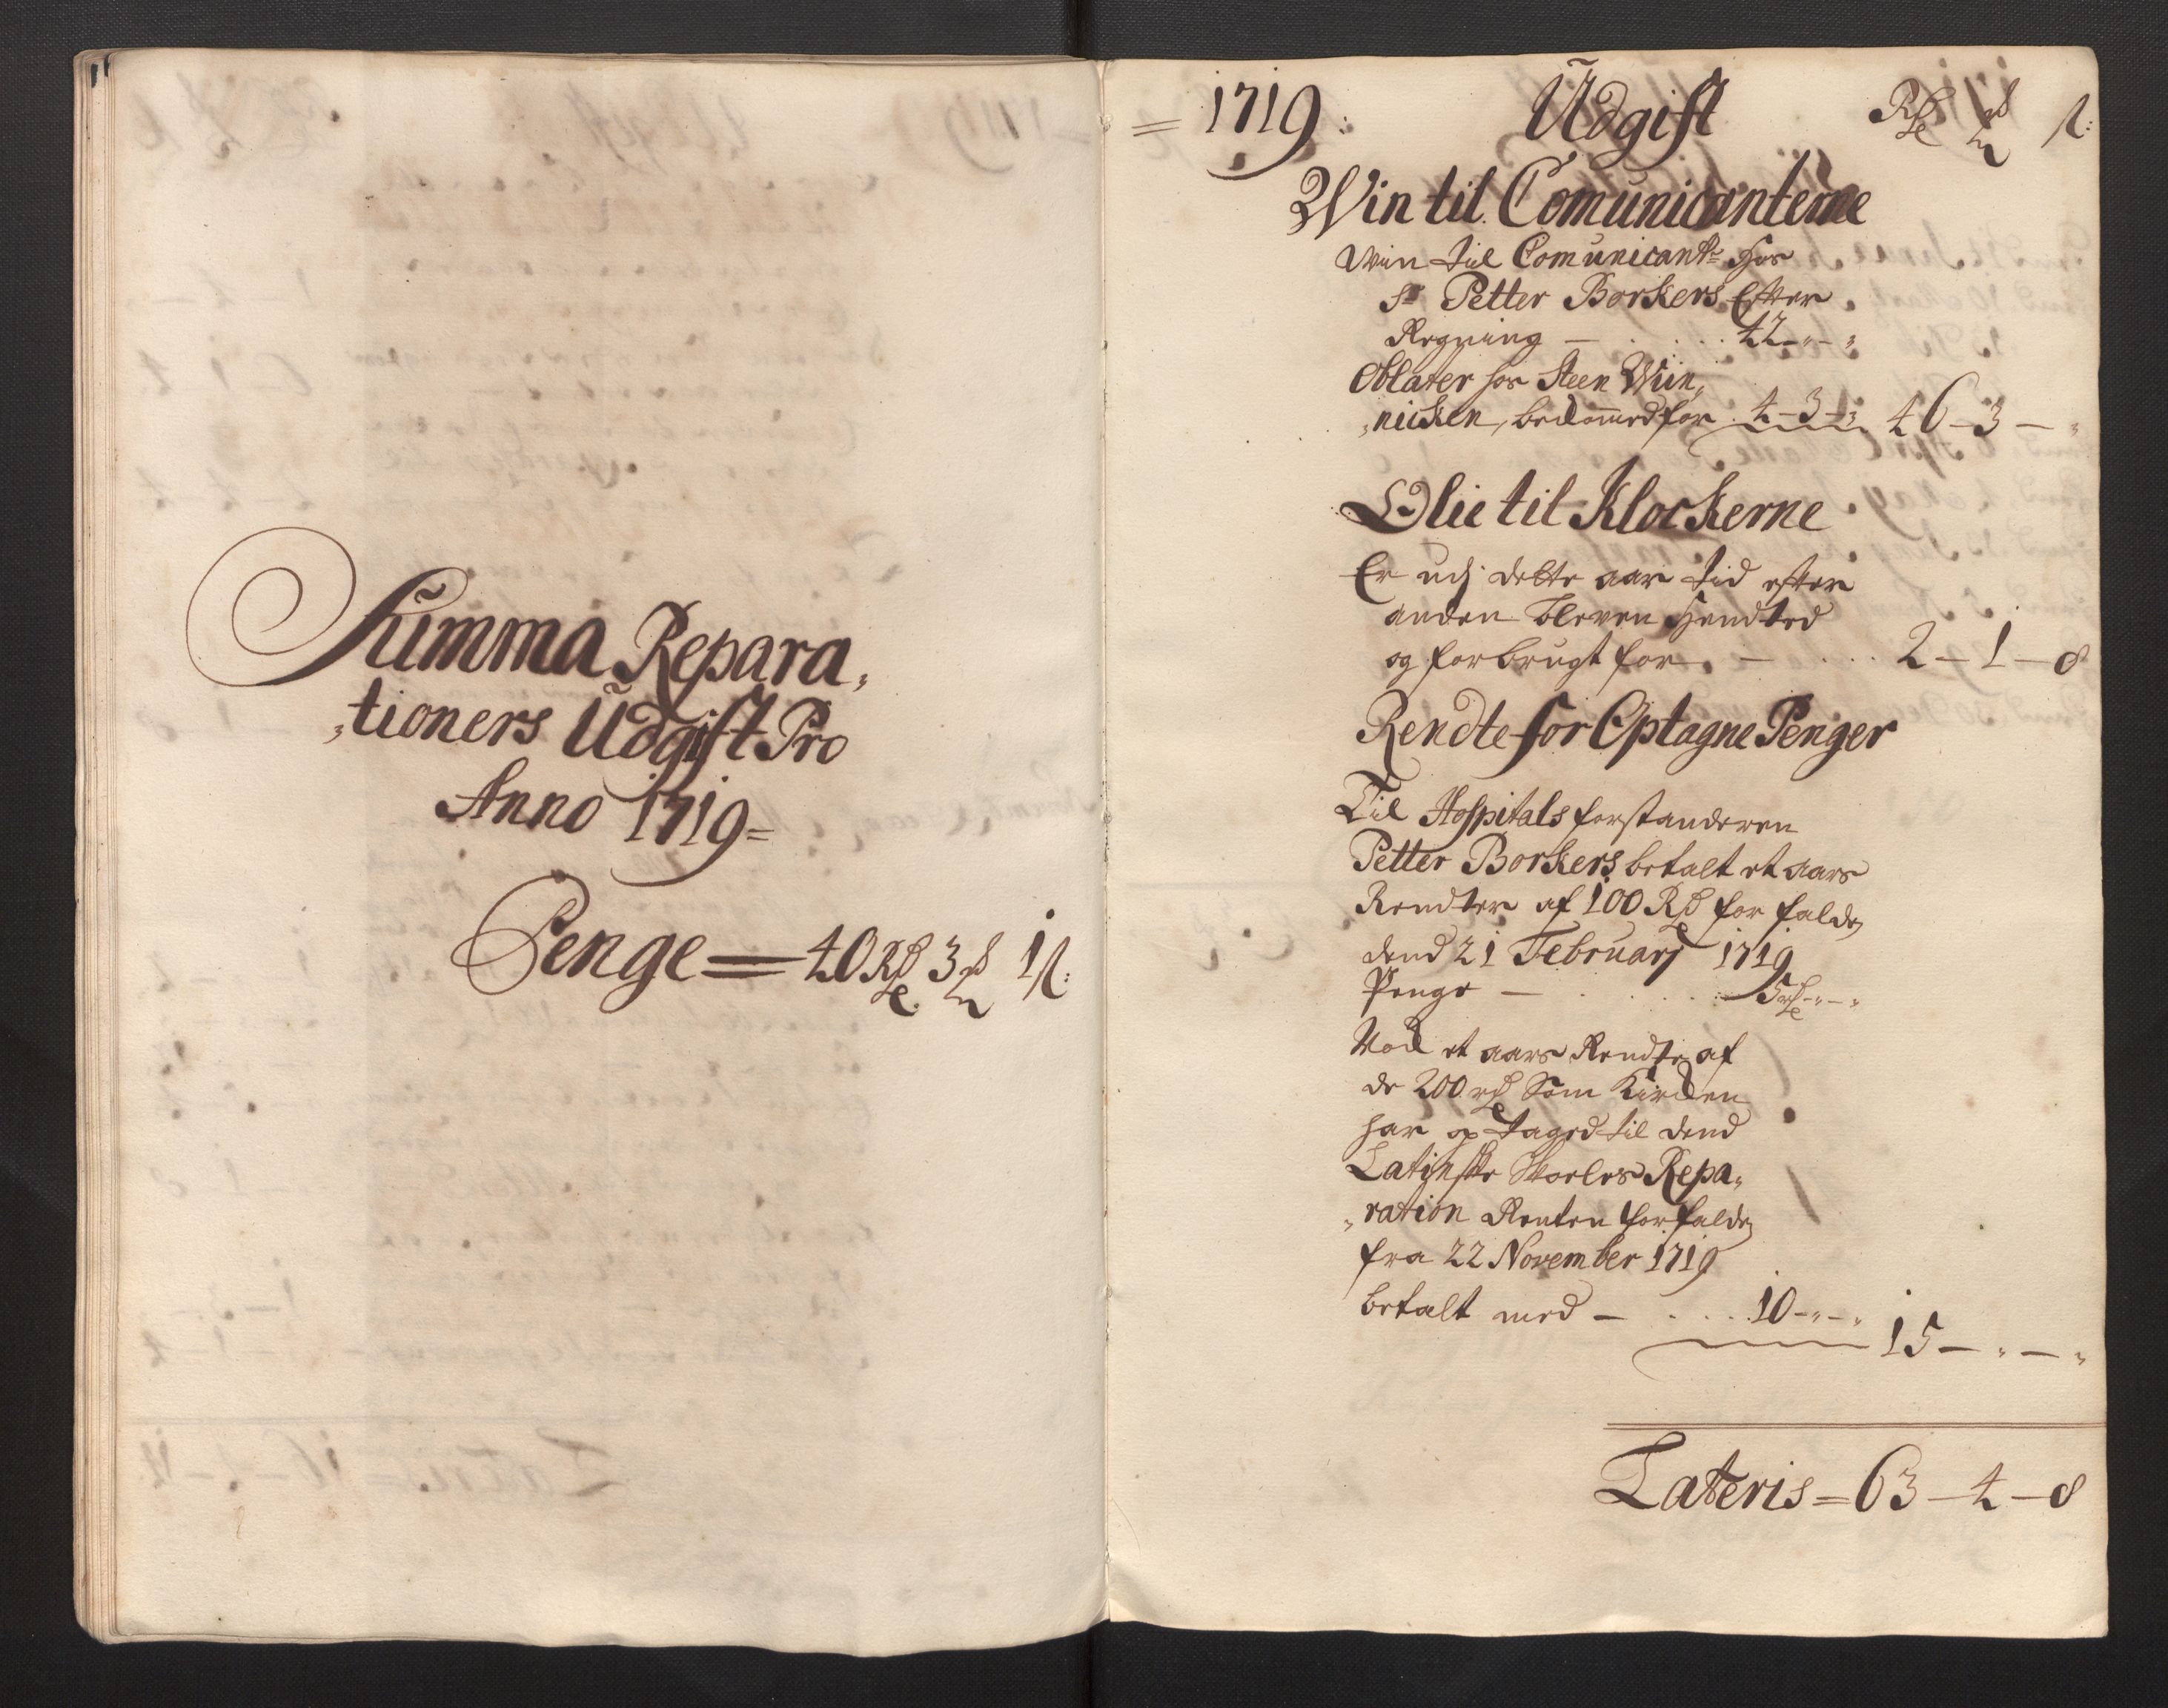 Summa Repara„
„tioners Udgift Pro
Anno 1719=
Penge = 40 Rd 3 mk 1 s:
= 1719: Udgift Rd mk s:
Win til Comunicanterne
Win til Comunicantr hos
Sr Petter Borkers Efter
Regning — . . . . 42 – „ – „
Oblater hos Steen Win„
„nicken, bekommed for . 4 – 3 – „ 46 – 3 – „
Olie til Klockerne
Er udj dette aar tid efter
anden bleven Hendted
og forbrugt for . – . . . . 2 – 1 – 8
Rendte for Optagne Penger
Til Hospitals forstanderen
Petter Borkers betalt et aars
Rendter af 100 Rd for falden
dend 21 Februarj 1719
Penge — . . . . 5 rd – „ – „
Nock et aars Rendte af
de 200 rd Som Kircken
har op taged til dend
Latinske Skoeles Repa„
„ration Renten forfalden
fra 22 November 1719
betalt med – . . . . 10 – „ – „
15 – „ – „
Lateris = 63 – 4 – 8